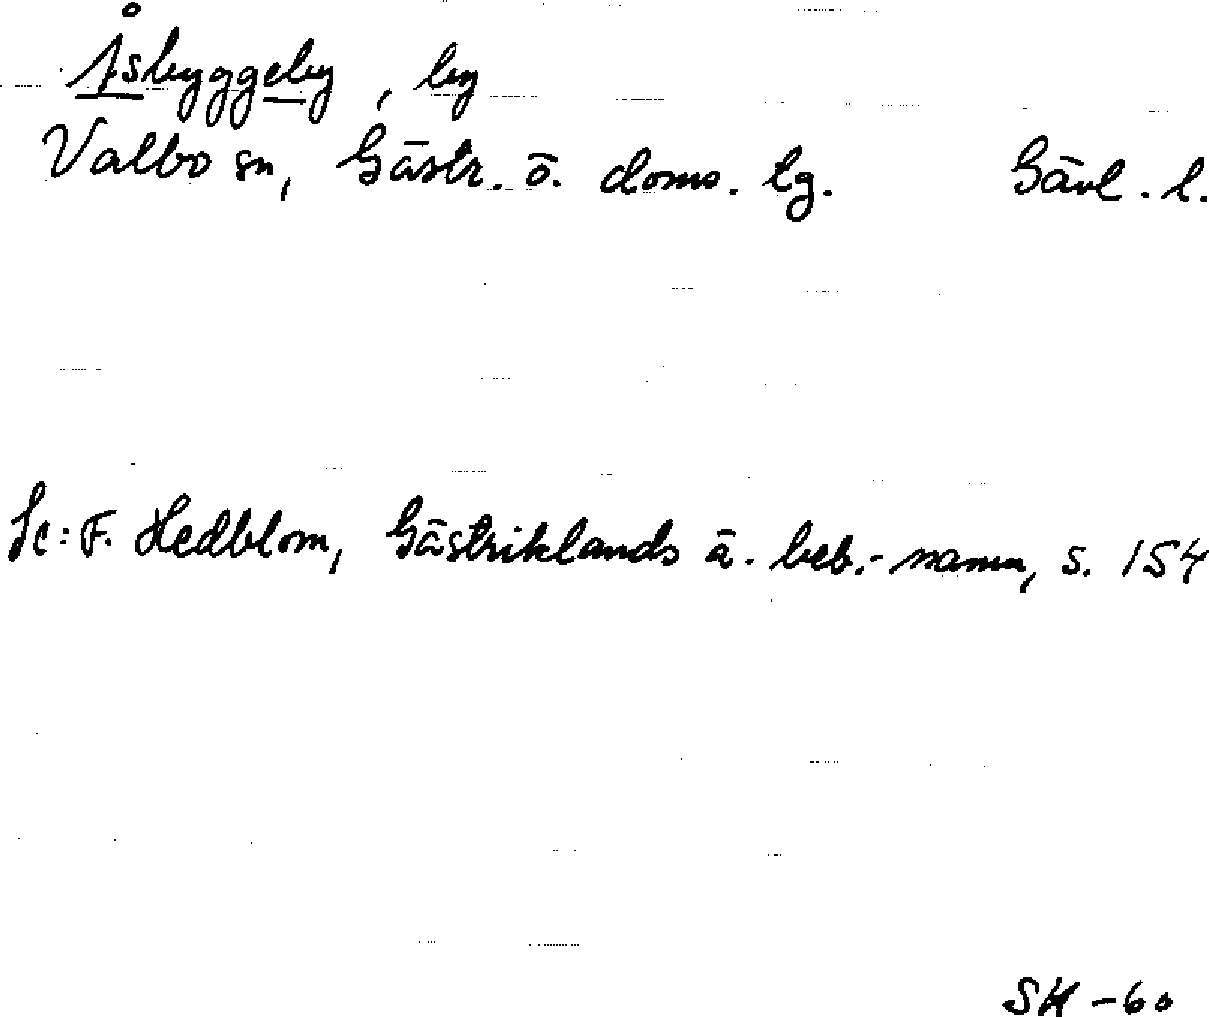 Åsbyggeby, by
Valbo sn, Gästr. ö. doms. lg. Gävl. l.
Se: F. Hedblom, Gästriklands ä. beb.-namn, s. 154
SH -60